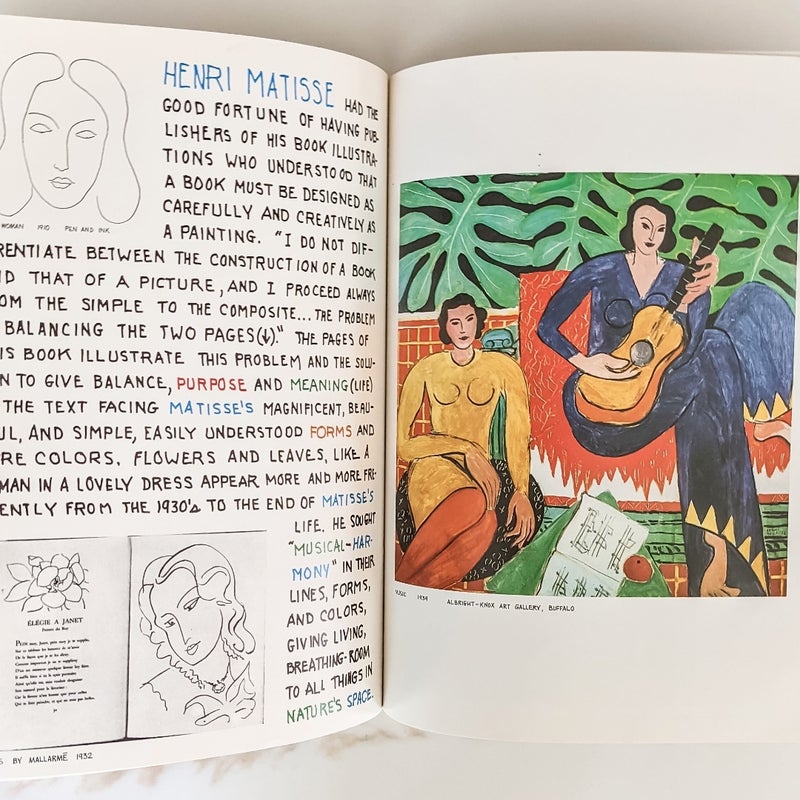 WOMAN 1910 PEN AND INK
HENRI MATISSE HAD THE
GOOD FORTUNE OF HAVING PUB-
LISHERS OF HIS BOOK ILLUSTRA-
TIONS WHO UNDERSTOOD THAT
A BOOK MUST BE DESIGNED AS
CAREFULLY AND CREATIVELY AS
A PAINTING. "I DO NOT DIF-
RENTIATE BETWEEN THE CONSTRUCTION OF A BOOK
D THAT OF A PICTURE, AND I PROCEED ALWAYS
OM THE SIMPLE TO THE COMPOSITE... THE PROBLEM
BALANCING THE TWO PAGES(↓)." THE PAGES OF
IS BOOK ILLUSTRATE THIS PROBLEM AND THE SOLU-
N TO GIVE BALANCE, PURPOSE AND MEANING(LIFE)
THE TEXT FACING MATISSE'S MAGNIFICENT, BEAU-
UL, AND SIMPLE, EASILY UNDERSTOOD FORMS AND
RE COLORS. FLOWERS AND LEAVES, LIKE A
MAN IN A LOVELY DRESS APPEAR MORE AND MORE FRE-
ENTLY FROM THE 1930's TO THE END OF MATISSE'S
LIFE. HE SOUGHT
"MUSICAL-HAR-
MONY" IN THEIR
LINES, FORMS,
AND COLORS,
GIVING LIVING,
BREATHING-ROOM
TO ALL THINGS IN
NATURE'S SPACE.
ÉLÉGIE A JANET
S BY MALLARMÉ 1932
1939 ALBRIGHT-KNOX ART GALLERY, BUFFALO